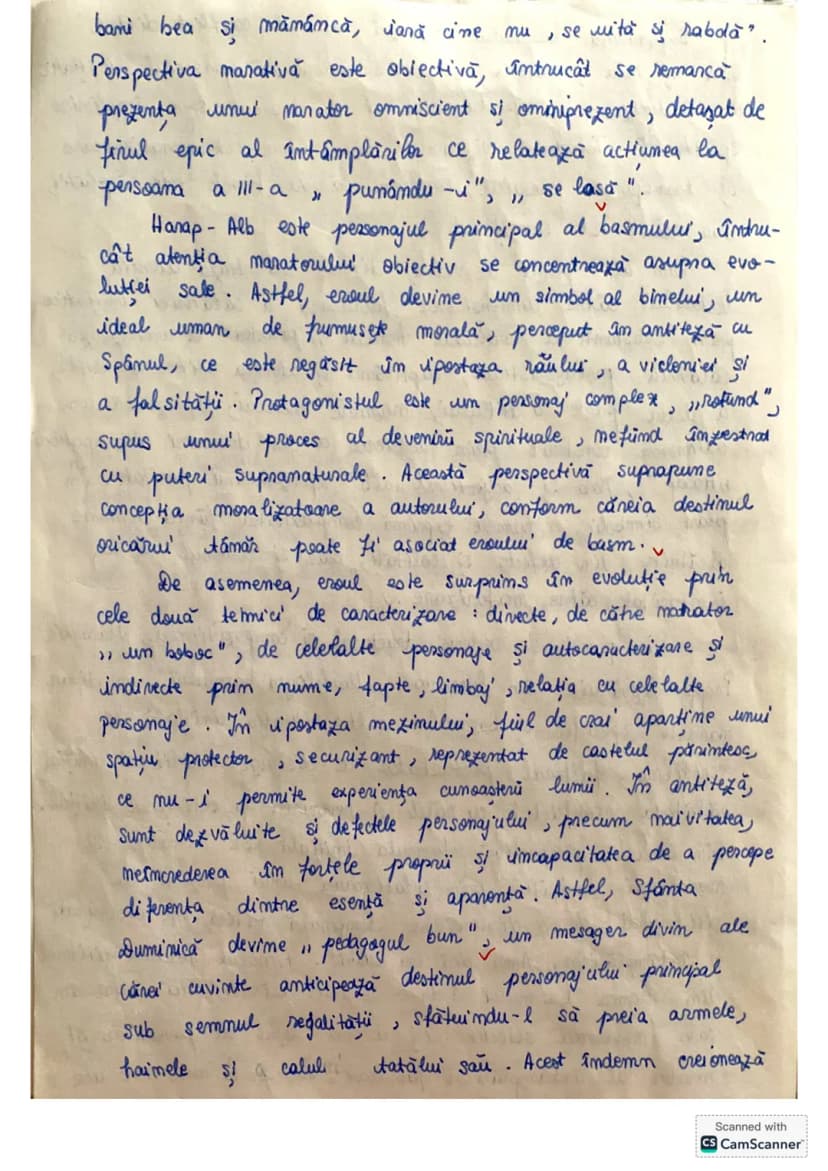 bani bea și mămâncă, iară cine nu, se uită și rabdă".
Perspectiva narativă este obiectivă, întrucât se remarcă
prezența unui narator omniscient și ominiprezent, detașat de
firul epic al întâmplărilor ce relatează acțiunea la
persoana a III-a „ punându-i", „ se lasă".
Harap-Alb este personajul principal al basmului, întru-
cât atenția naratorului obiectiv se concentrează asupra evo-
luției sale. Astfel, eroul devine un simbol al binelui, un
ideal uman de frumusețe morală, perceput în antiteză cu
Spânul, ce este regăsit în ipostaza răului, a vicleniei și
a falsității. Protagonistul este un personaj complex, „rotund",
supus unui proces al devenirii spirituale, nefiind înzestrat
cu puteri supranaturale. Această perspectivă suprapune
concepția moralizatoare a autorului, conform căreia destinul
oricărui tânăr poate fi asociat eroului de basm.
De asemenea, eroul este surprins în evoluție prin
cele două tehnici de caracterizare: directe, de către narator
„ un boboc", de celelalte personaje și autocaracterizare și
indirecte prin nume, fapte, limbaj, relația cu celelalte
personaje. În ipostaza mezinului, fiul de crai aparține unui
spațiu protector, securizant, reprezentat de castelul părintesc,
ce nu-i permite experiența cunoașterii lumii. În antiteză,
sunt dezvăluite și defectele personajului, precum naivitatea,
neîncrederea în forțele proprii și incapacitatea de a percepe
diferența dintre esență și aparență. Astfel, Sfânta
Duminică devine „ pedagogul bun", un mesager divin ale
cărei cuvinte anticipează destinul personajului principal
sub semnul regalității, sfătuindu-l să preia armele,
hainele și a calul tatălui său. Acest îndemn creionează
Scanned with
CS CamScanner